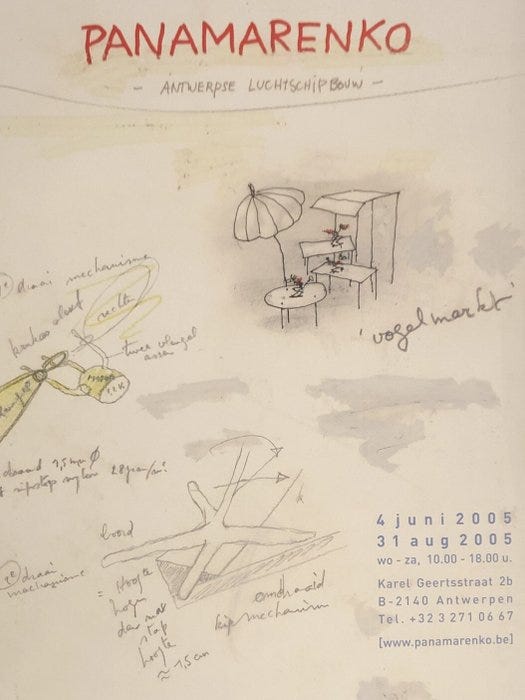 PANAMARENKO
- ANTWERPSE LUCHTSCHIPBOUW -
draai mechanisme
rechts
twee vleugel
assen
'vogelmarkt'
ripstop nylon 28gram/m²
boord
2e draai
mechanisme
= Hoogte
hoger
dan mas
stop
hoogte
≈ 1,5 cm
omdraaid
kip mechanism
4 juni 2005
31 aug 2005
wo - za, 10.00 - 18.00 u.
Karel Geertsstraat 2b
B-2140 Antwerpen
Tel. +32 3 271 06 67
[www.panamarenko.be]